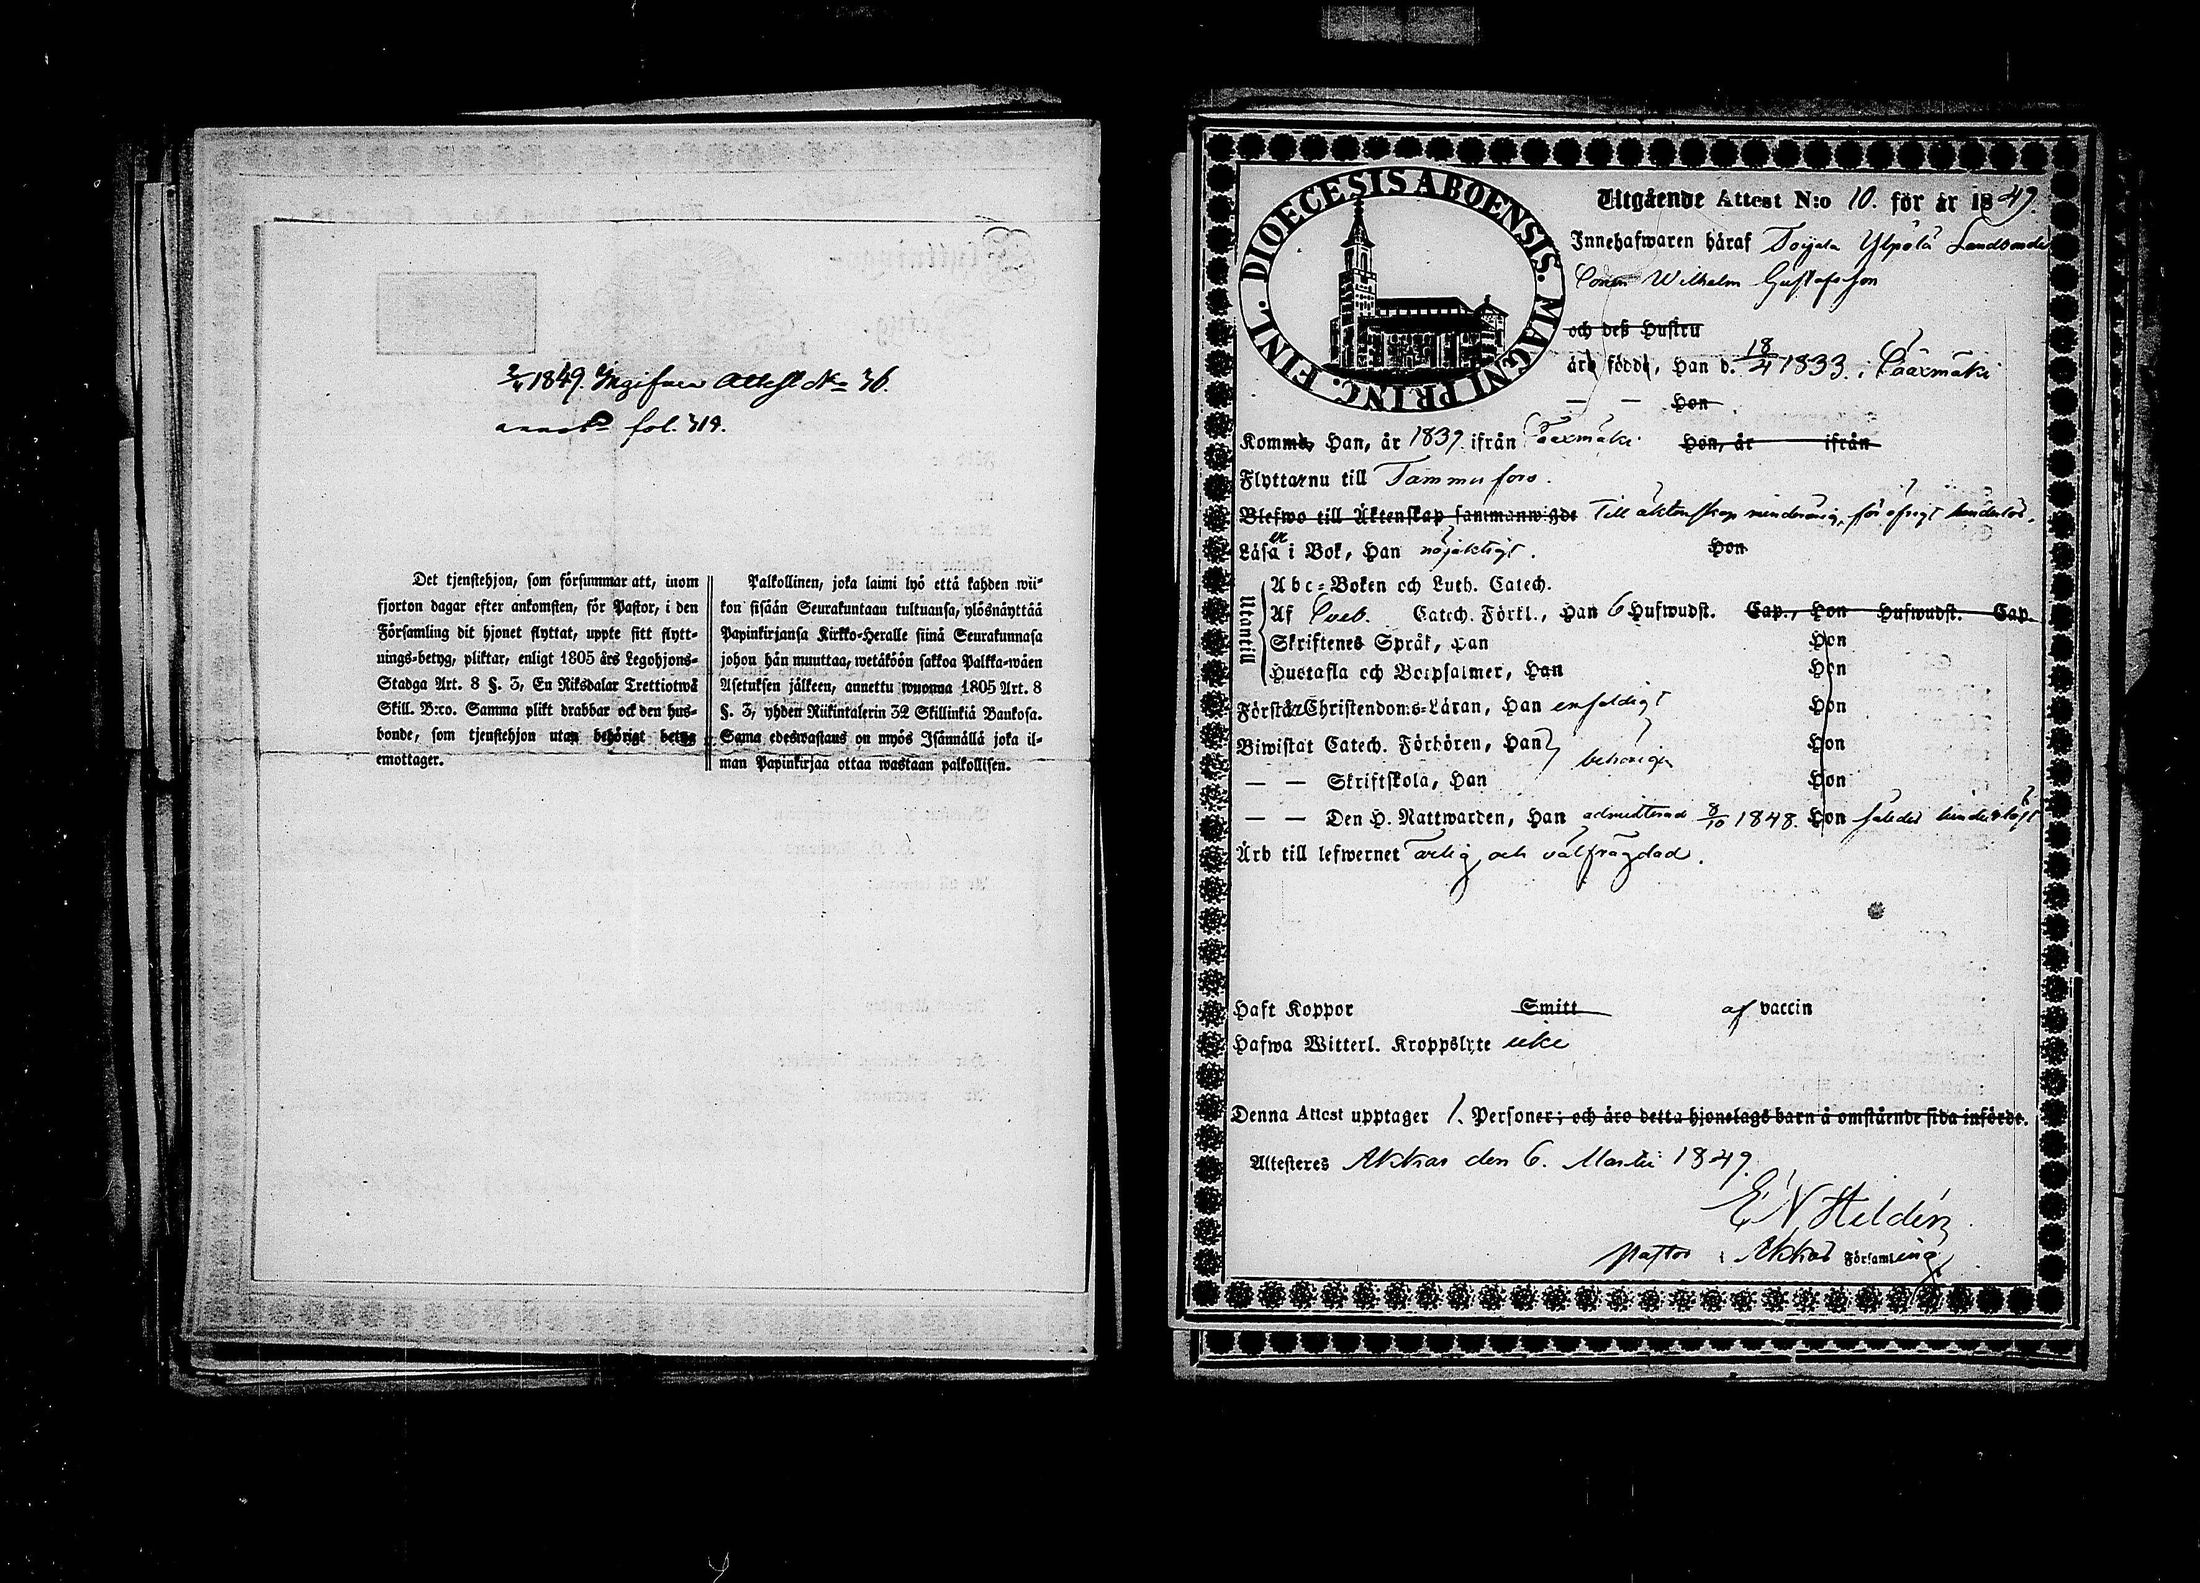 2/4 1849. Ingifven Attest No 36.
annot. fol. 319.
Det tjenstehjon, som försummar att, inom
fjorton dagar efter ankomsten, för Pastor, i den
Församling dit hjonet flyttat, uppte sitt flytt-
nings-betyg, pliktar, enligt 1805 års Legohjons-
Stadga Art. 8 §. 3, En Riksdalar Trettiotwå
Skill. B:co. Samma plikt drabbar ock den hus-
bonde, som tjenstehjon utan behörigt betyg
emottager.
Palkollinen, joka laimi lyö että kahden wii-
kon sisään Seurakuntaan tultuansa, ylösnäyttää
Papinkirjansa Kirkko-Heralle siinä Seurakunnasa
johon hän muuttaa, wetäköön sakkoa Palkka-wäen
Asetuksen jälkeen, annettu wuonna 1805 Art. 8
§. 3, yhden Riikintalerin 32 Skillinkiä Bankosa.
Sama edeswastaus on myös Isännällä joka il-
man Papinkirjaa ottaa wastaan palkollisen.
FINL. DIOECESIS ABOENSIS. MAGNI PRINC.
Utgående Attest N:o 10. för år 1849.
Innehafwaren häraf Toijala Ylpölä Landbonde
Wilhelm Gustafsson
och deß Hustru
äro födde, Han d. 18/4 1833. i Sääxmäki
— — Hon
Komme, Han, år 1839. ifrån Sääxmäki Hon, år ifrån
Flyttar nu till Tammerfors.
Blefwo till Äktenskap sammanwigde Till äktenskap minderårig, för öfrigt hinderlös.
Läser i Bok, Han nöjaktigt. Hon
Utantill
Abc-Boken och Luth. Catech.
Af Sveb. Catech. Förkl., Han 6 Hufwudst. Cap., Hon Hufwudst. Cap.
Skriftenes Språk, Han Hon
Hustafla och Botpsalmer, Han Hon
Förstår Christendoms-Läran, Han enfaldigt Hon
Biwistat Catech. Förhören, Han behörigen Hon
— — Skriftskola, Han Hon
— — Den H. Nattwarden, Han admitterad 8/10 1848. Hon således hinderlöst
Äro till lefwernet ärlig och välfrägdad.
Haft Koppor Smitt af vaccin
Hafwa Witterl. Kroppslyte icke
Denna Attest upptager 1. Personer; och äro detta hjonelags barn å omstående sida införde.
Attesteres Akkas den 6. Martii 1849.
E N Heldén
Pastor i Akkas Församling